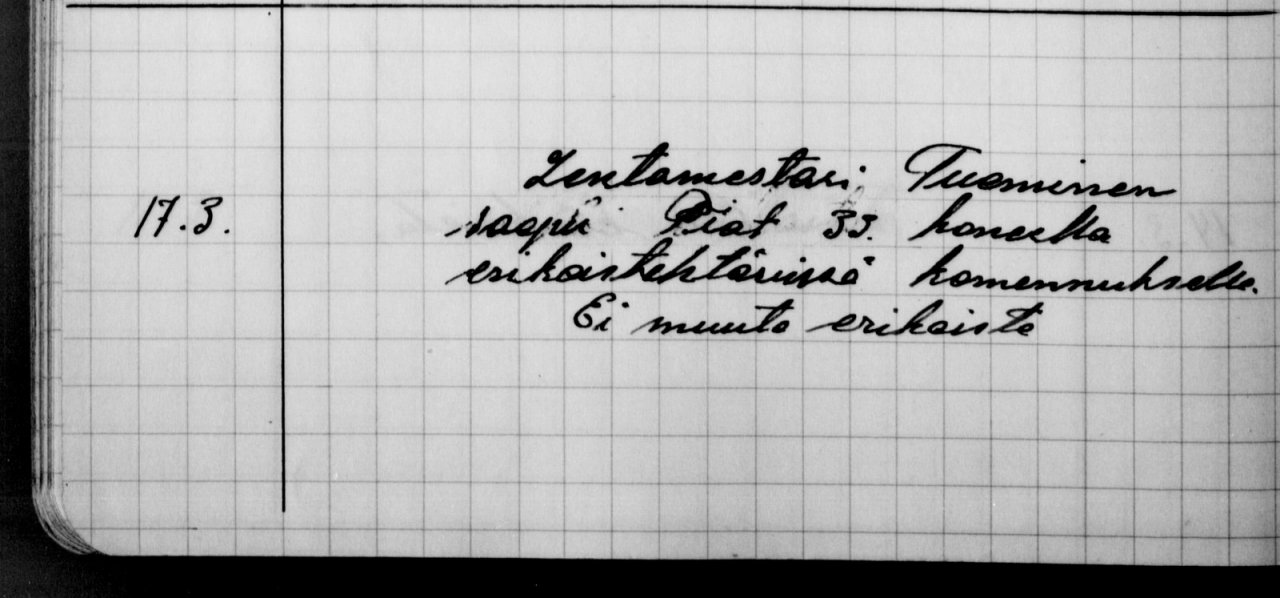 Lentomestari Tuominen
17.3. saapui Fiat 33. koneella
erikoistehtävissä komennukselle.
Ei muuta erikoista